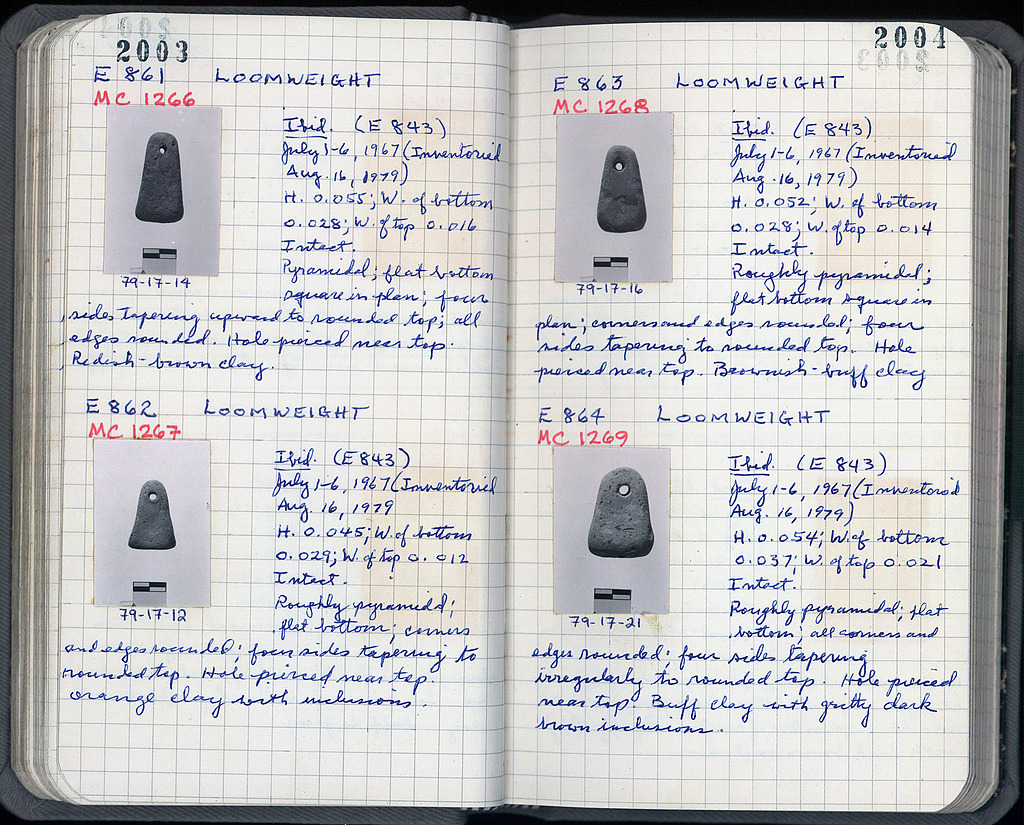 2003
E 861 LOOMWEIGHT
MC 1266
Ibid. (E 843)
July 1-6, 1967 (Inventoried
Aug. 16, 1979)
H. 0.055; W. of bottom
0.028; W. of top 0.016
Intact.
Pyramidal; flat bottom
square in plan; four
79-17-14
sides tapering upward to rounded top; all
edges rounded. Hole pierced near top.
Redish-brown clay.
E 862 LOOMWEIGHT
MC 1267
Ibid. (E 843)
July 1-6, 1967 (Inventoried
Aug. 16, 1979
H. 0.045; W. of bottom
0.029; W. of top 0.012
Intact.
Roughly pyramidal;
flat bottom; corners
79-17-12
and edges rounded; four sides tapering to
rounded top. Hole pierced near top.
orange clay with inclusions.
2004
E 863 LOOMWEIGHT
MC 1268
Ibid. (E 843)
July 1-6, 1967 (Inventoried
Aug. 16, 1979)
H. 0.052; W. of bottom
0.028; W. of top 0.014
Intact.
Roughly pyramidal;
flat bottom square in
79-17-16
plan; corners and edges rounded; four
sides tapering to rounded top. Hole
pierced near top. Brownish-buff clay
E 864 LOOMWEIGHT
MC 1269
Ibid. (E 843)
July 1-6, 1967 (Inventoried
Aug. 16, 1979)
H. 0.054; W. of bottom
0.037; W. of top 0.021
Intact.
Roughly pyramidal; flat
bottom; all corners and
79-17-21
edges rounded; four sides tapering
irregularly to rounded top. Hole pierced
near top Buff clay with gritty dark
brown inclusions.